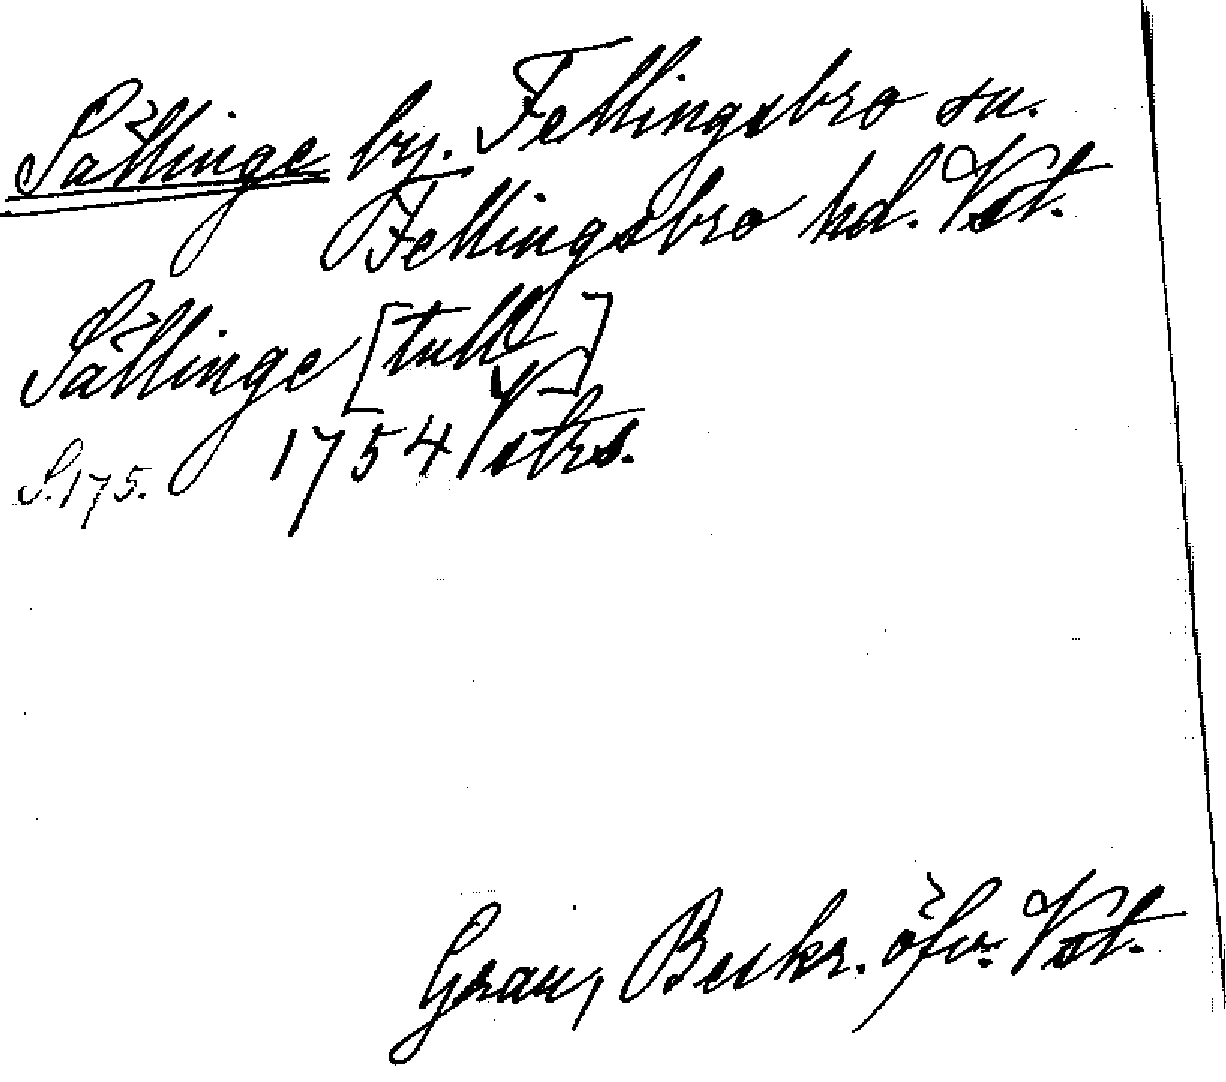 Sällinge by. Fellingsbro sn.
Fellingsbro hd. Vst.
Sällinge [tull]
S. 175. 1754 Vstrs.
Grau, Beskr. öfv. Vst.